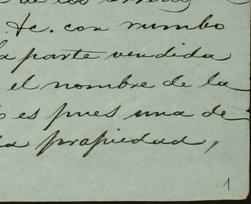 de los
&c. con rumbo
la parte vendida
el nombre de la
es pues una de
la propiedad,
1